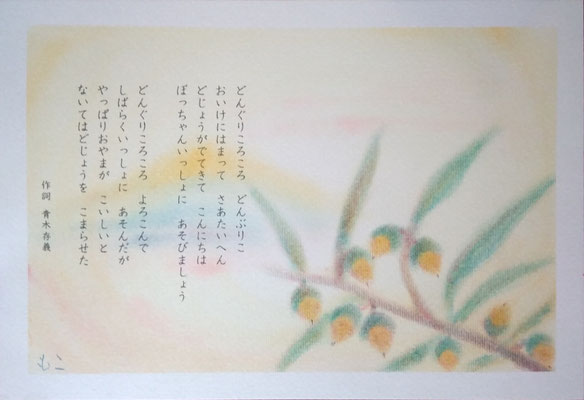 どんぐりころころ　どんぶりこ
おいけにはまって　さあたいへん
どじょうがでてきて　こんにちは
ぼっちゃんいっしょに　あそびましょう
どんぐりころころ　よろこんで
しばらくいっしょに　あそんだが
やっぱりおやまが　こいしいと
ないてはどじょうを　こまらせた
作詞　青木存義
むこ